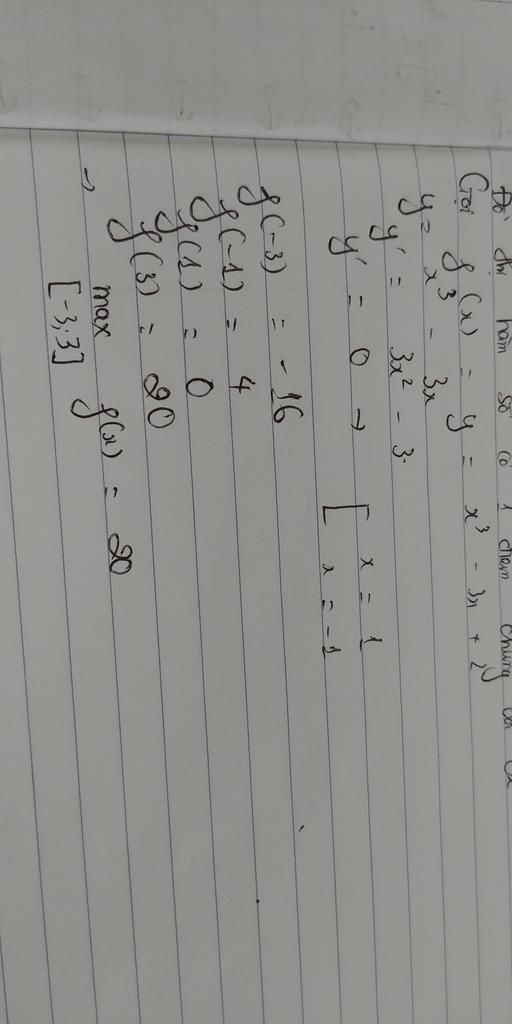 Đồ thị hàm số có 1 điểm chung với Ox
Gọi f(x) = y = x³ - 3x + 2
y = x³ - 3x
y' = 3x² - 3.
y' = 0 → [ x = 1
x = -1
f(-3) = -16
f(-1) = 4
f(1) = 0
f(3) = 20
→ max f(x) = 20
[-3;3]